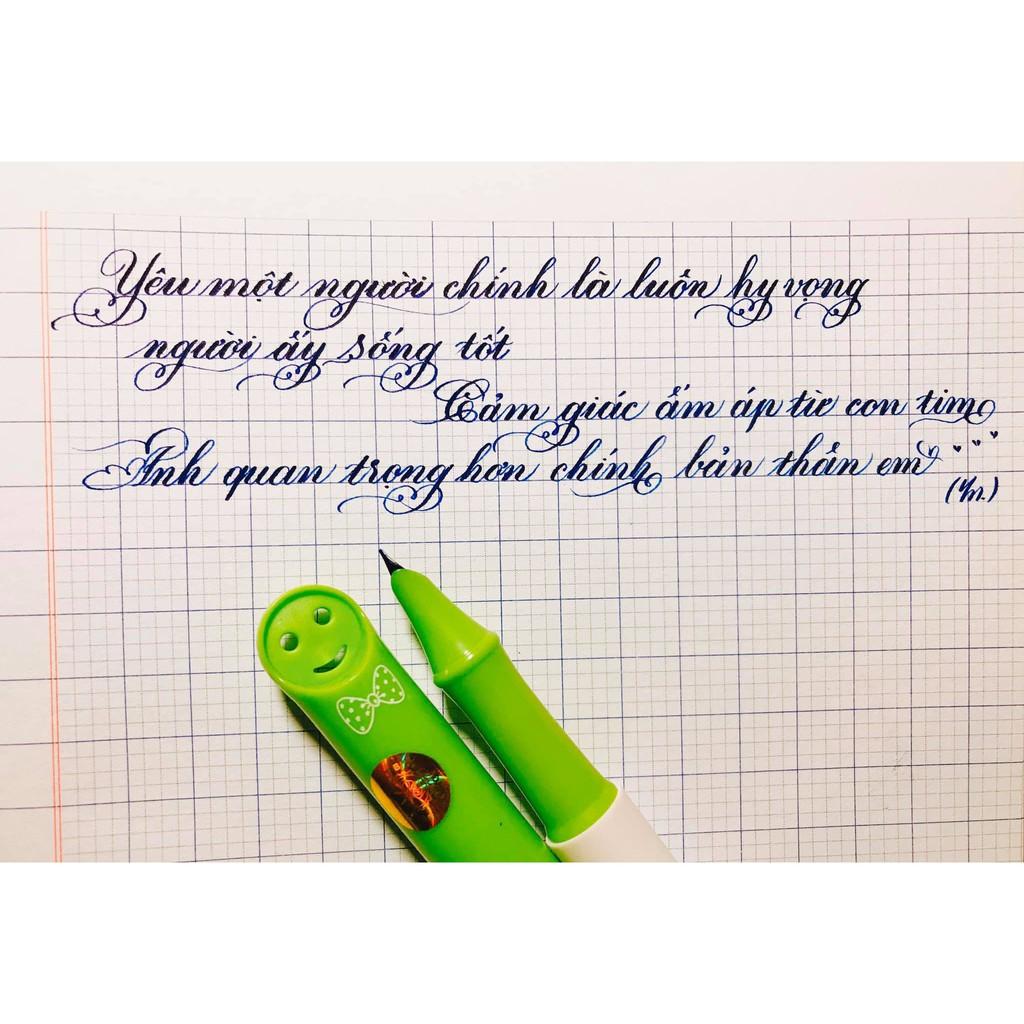 Yêu một người chính là luôn hy vọng
người ấy sống tốt
Cảm giác ấm áp từ con tim
Anh quan trọng hơn chính bản thân em